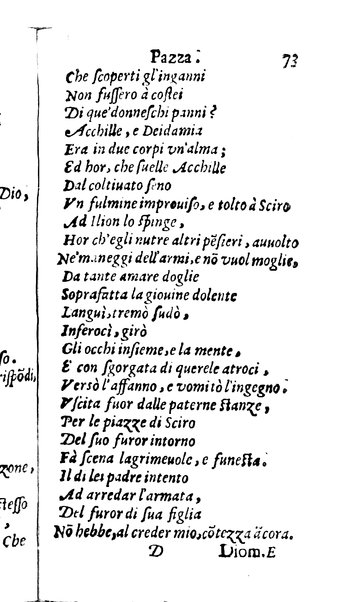 Pazza. 73
Che ſcoperti gl'inganni
Non fuſſero à coſtei
Di que' donneſchi panni?
Acchille, e Deidamia
Era in due corpi vn'alma;
Ed hor, che ſuelle Acchille
Dio,
Dal coltiuato ſeno
Vn fulmine improuiſo, e tolto à Sciro
Ad Ilion lo ſpinge,
Hor ch'egli nutre altri pẽſieri, auuolto
Ne'maneggi dell'armi, e nõ vuol moglie,
Da tante amare doglie
Soprafatta la giouine dolente
Languì, tremò ſudò,
Inferocì, girò
Gli occhi inſieme, e la mente,
ſo.
E con ſgorgata di querele atroci,
riſpõdi,
Versò l'affanno, e vomitò l'ingegno.
Vſcita fuor dalle paterne ſtanze,
Per le piazze di Sciro
Del ſuo furor intorno
Fà ſcena lagrimeuole, e funeſta.
zone,
Il di lei padre intento
Ad arredar l'armata,
ſteſſo
Del furor di ſua figlia
,
Nõ hebbe, al creder mio, cõtezza ãcora.
Che
D Diom. E